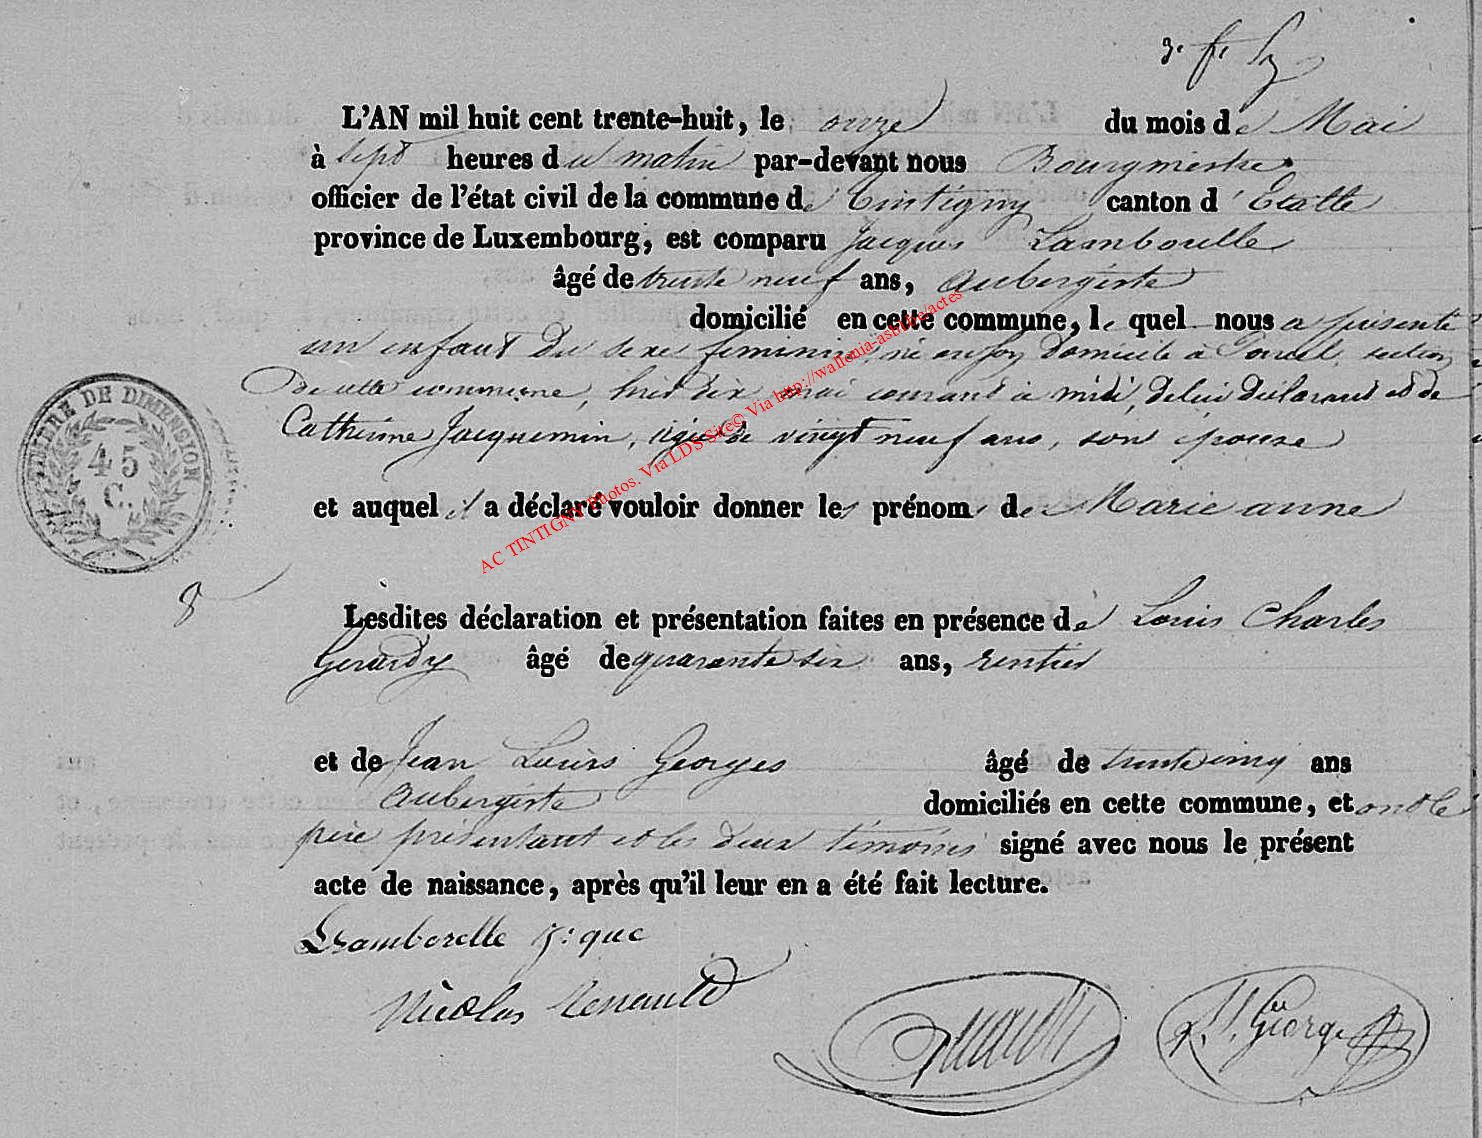 3. f. 
L'AN mil huit cent trente-huit, le onze du mois de Mai
à sept heures du matin par-devant nous Bourgmestre
officier de l'état civil de la commune de Tintigny canton d'Etalle
province de Luxembourg, est comparu Jacques Lamborelle
âgé de trente neuf ans, Aubergiste
domicilié en cette commune, le quel nous a présenté
un enfant du sexe féminin, né en son domicile à Poncel, section
de cette commune, hier dix mai courant à midi, de lui déclarant et de
Catherine Jacquemin, agée de vingt neuf ans, son épouse
et auquel il a déclaré vouloir donner les prénoms de Marie anne
TIMBRE DE DIMENSION
45
C.
8
Lesdites déclaration et présentation faites en présence de Louis Charles
Gerardy âgé de quarante six ans, rentier
et de Jean Louis Georges âgé de trente cinq ans
Aubergiste domiciliés en cette commune, et ont le
père présentant et les deux témoins signé avec nous le présent
acte de naissance, après qu'il leur en a été fait lecture.
Lramborelle j:que
Nicolas Renauld
J. L. George
AC TINTIGNY Photos. Via LDS Site© Via http://wallonia-asbl.be/actes